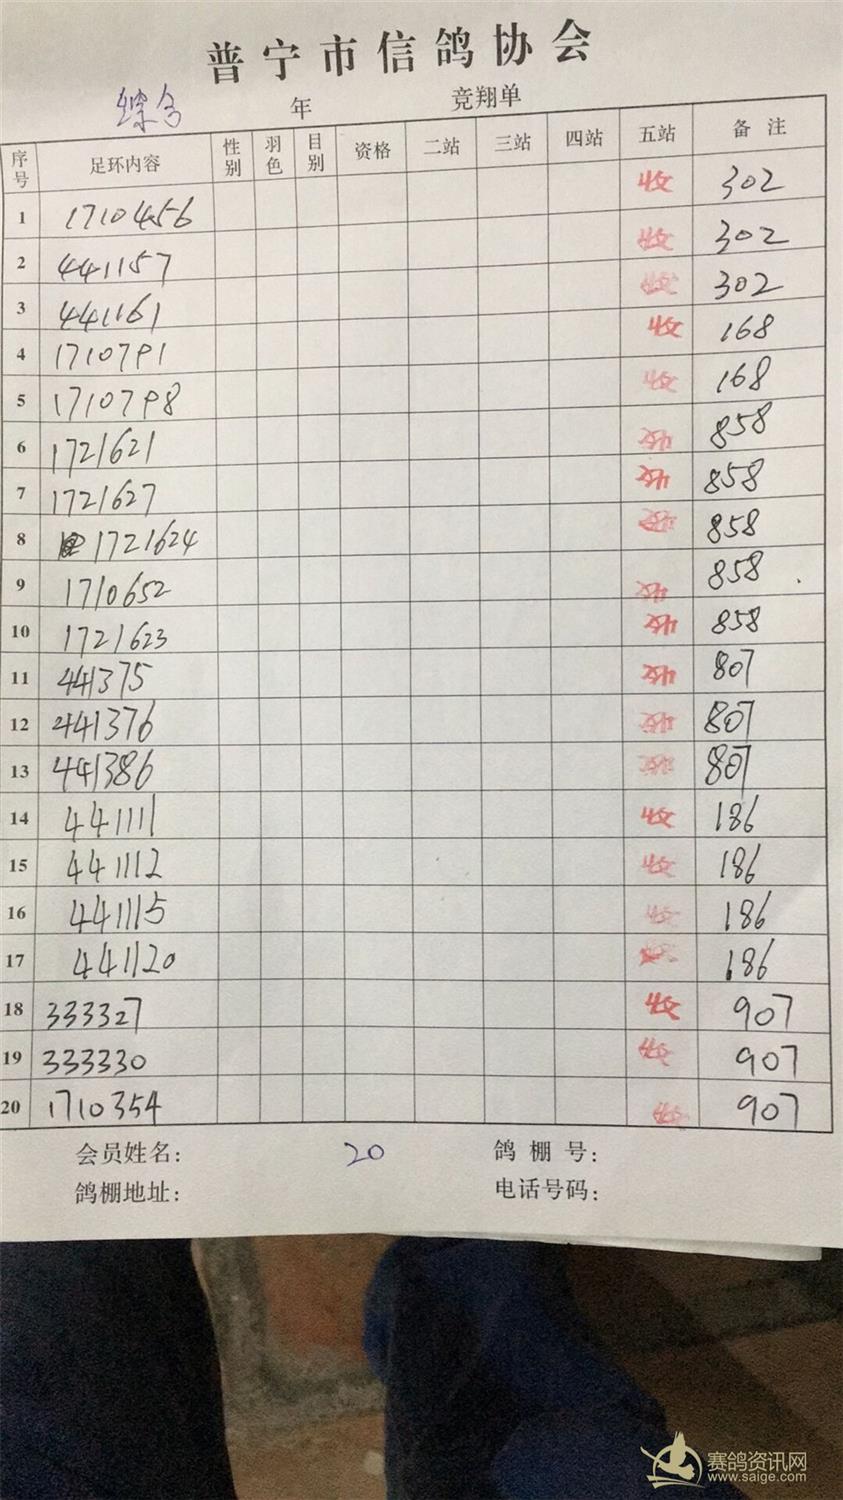 普宁市信鸽协会
综合 年 竞翔单
序号 足环内容 性别 羽色 目别 资格 二站 三站 四站 五站 备注
1 1710456 收 302
2 441157 收 302
3 441161 收 302
4 1710791 收 168
5 1710798 收 168
6 1721621 收 858
7 1721627 收 858
8 1721624 收 858
9 1710652 收 858
10 1721623 收 858
11 441375 收 807
12 441376 收 807
13 441386 收 807
14 441111 收 186
15 441112 收 186
16 441115 收 186
17 441120 收 186
18 333327 收 907
19 333330 收 907
20 1710354 收 907
会员姓名: 20 鸽棚号:
鸽棚地址: 电话号码:
赛鸽资讯网
www.saige.com